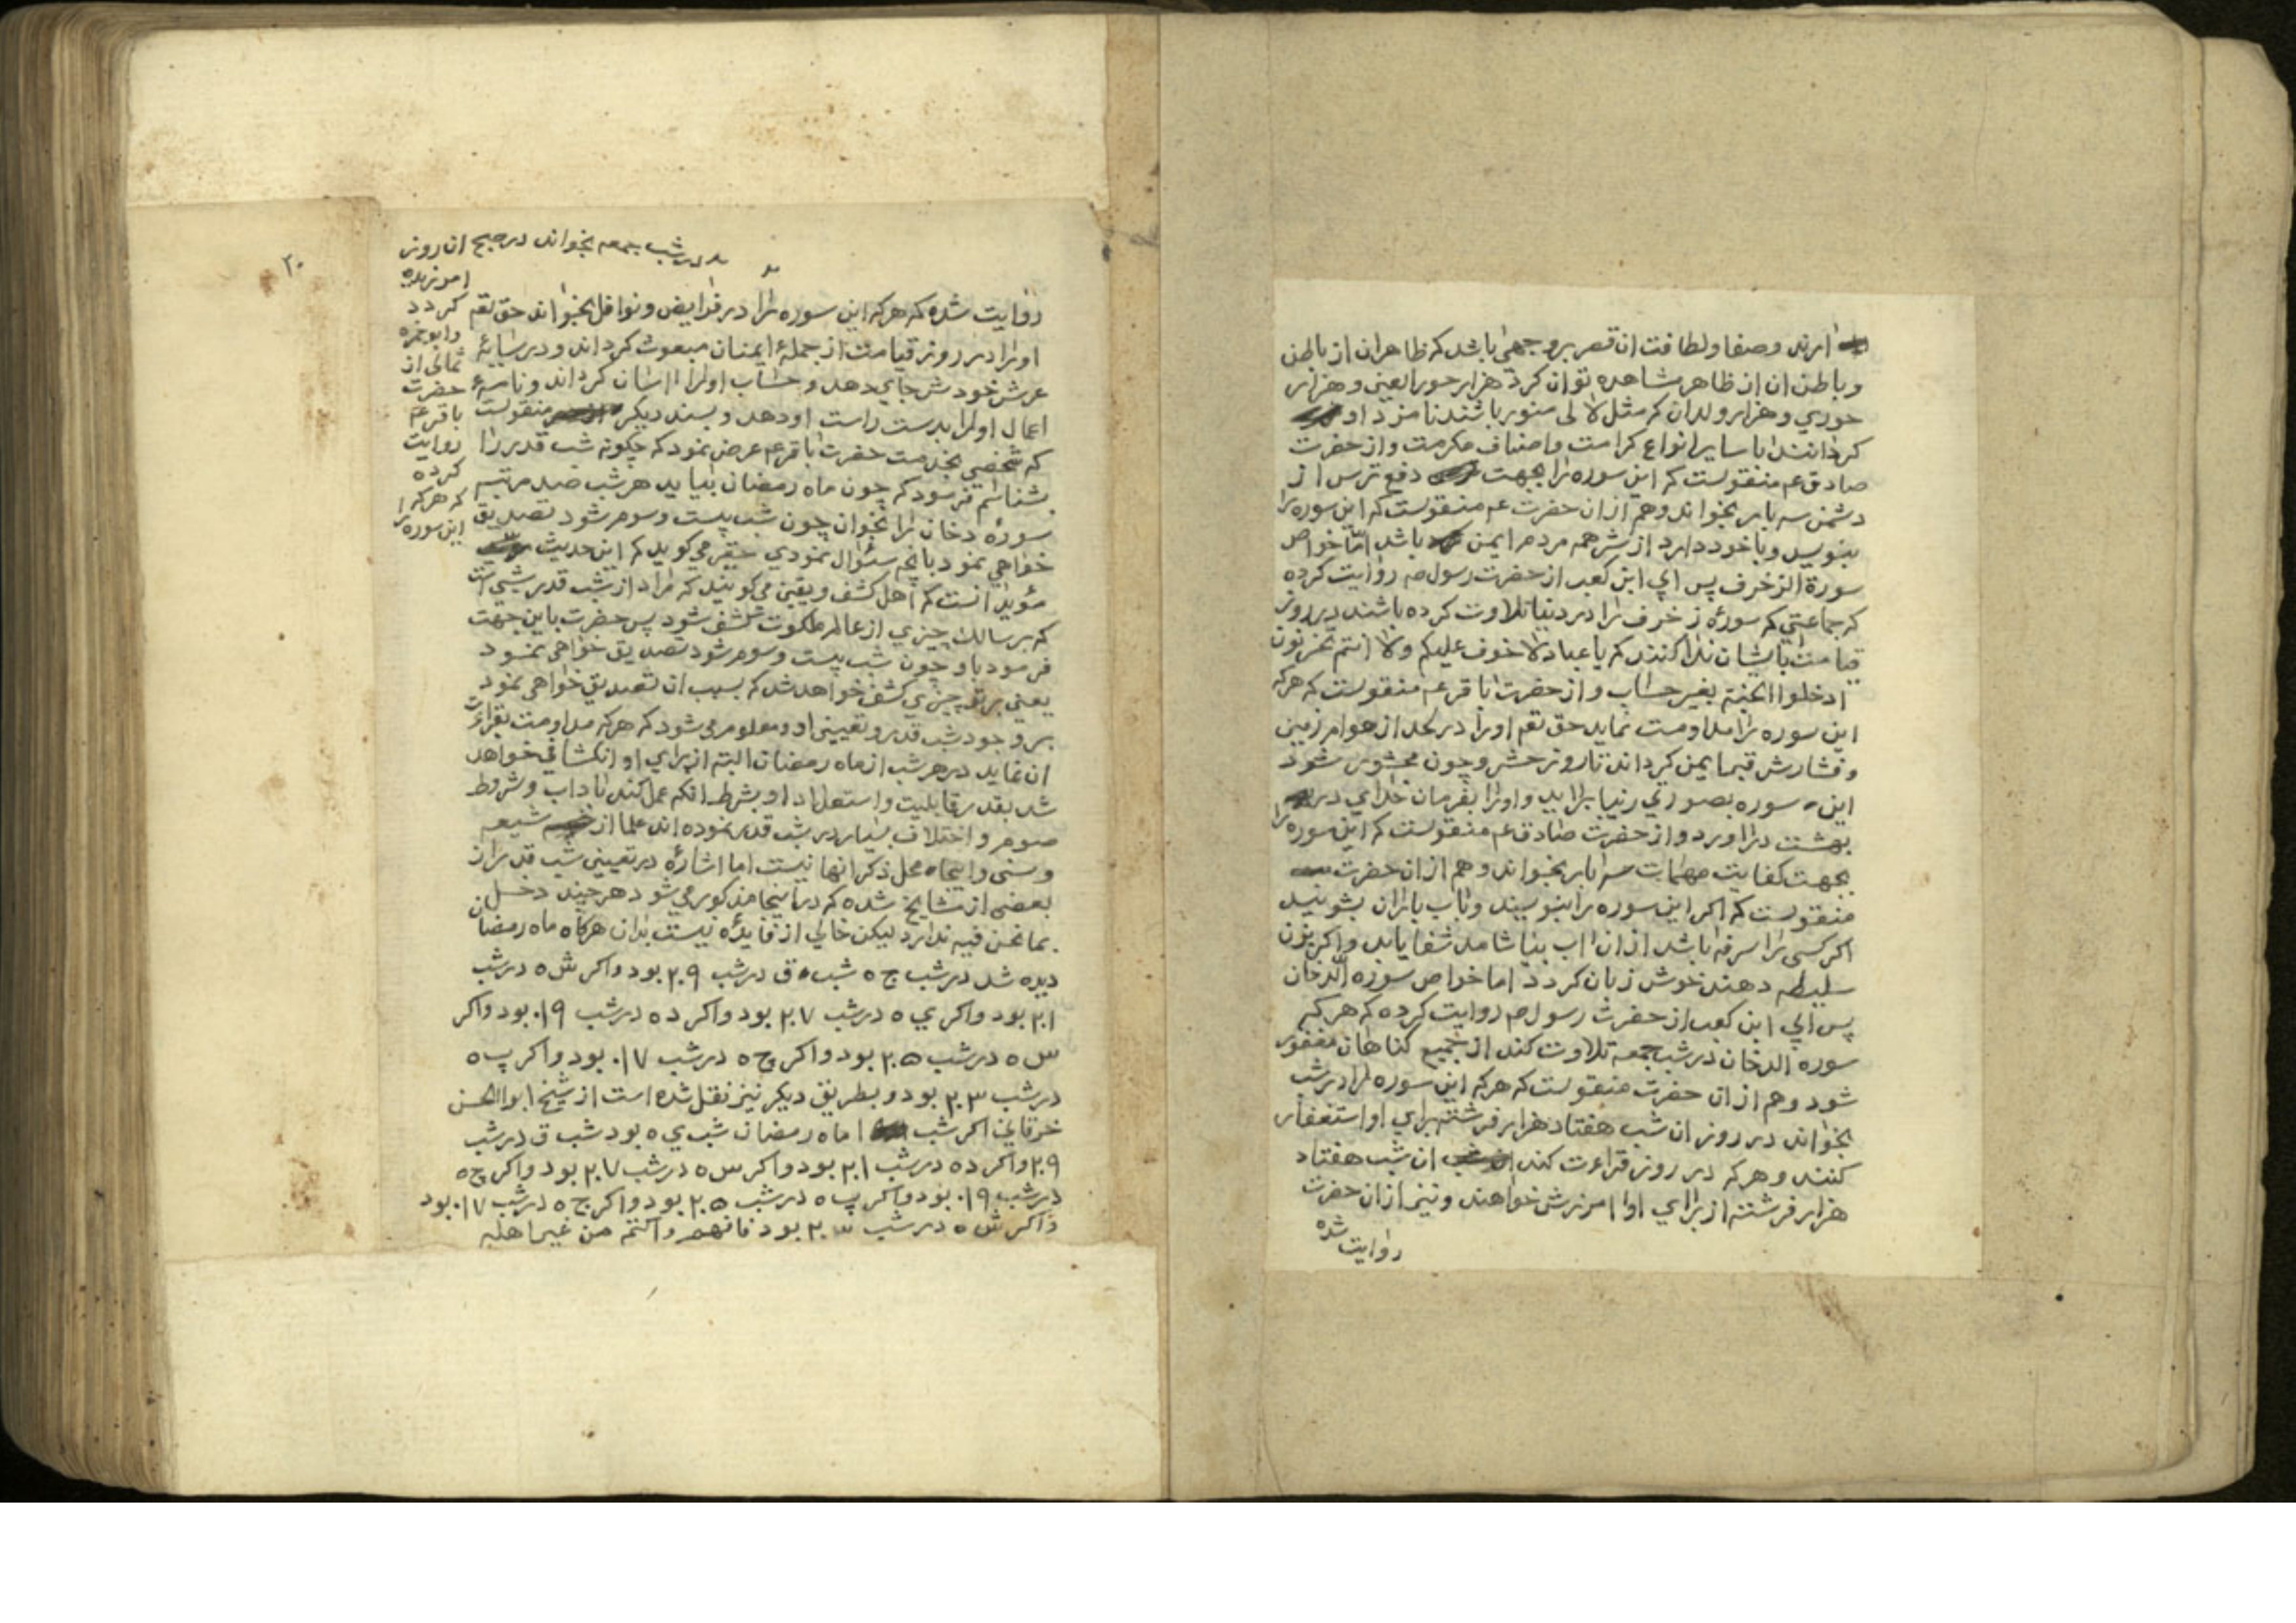 ارند و صفا و لطافت ان قصر بر وجهی باشد که ظاهر ان از باطن
و باطن ان از ظاهر مشاهده توان کرد هزار حور العین و هزار
حوري و هزار ولدان که مثل لالی منور باشند نامزد او
کردانند با سایر انواع کرامت و اصناف مکرمت و از حضرت
صادق عم منقولست که این سوره را بجهت دفع ترس از
دشمن سه بار بخواند و هم از ان حضرت عم منقولست که این سوره را
بنویسد و با خود دارد از شر همه مردم ایمن باشد امّا خواص
سورة الزخرف پس ابي ابن کعب از حضرت رسول صم روایت کرده
که جماعتي که سورهٔ زخرف را در دنیا تلاوت کرده باشند در روز
قیامت بایشان ندا کنند که یا عباد لا خوف علیکم ولا انتم تحزنون
ادخلوا الجنة بغیر حساب و از حضرت باقر عم منقولست که هر که
این سوره را مداومت نماید حق تعم او را در لحد از هوام زمین
و فشارش قبر ایمن کرداند تا روز حشر و چون محشور شود
این سوره بصورتي زیبا براید و او را بفرمان خداي در
بهشت در اورد و از حضرت صادق عم منقولست که این سوره را
بجهت کفایت مهمات سه بار بخواند و هم از ان حضرت
منقولست که اکر این سوره را بنویسند و باب باران بشویند
اکر کسی را سرفه باشد از ان اب بیاشامد شفا یابد و اکر بزن
سلیطه دهند خوش زبان کردد اما خواص سوره الدخان
پس ابي ابن کعب از حضرت رسول صم روایت کرده که هر که
سوره الدخان در شب جمعه تلاوت کند از جمیع کناهان مغفور
شود و هم از ان حضرت منقولست که هر که این سوره را در شب
بخواند در روز ان شب هفتاد هزار فرشته براي او استغفار
کنند و هر که در روز قراءت کند ان شب هفتاد
هزار فرشته از براي او امرزش خواهند و نیز از ان حضرت
روایت شده
۲۰
در شب جمعه بخواند در صبح ان روز
امرزیده
کردد
و ابو حمزه
ثمالی از
حضرت
باقر عم
روایت
کرده
که هر که
این سوره را
روایت شده که هر که این سوره را در فرایض و نوافل بخواند حق تعم
او را در روز قیامت از جملهٔ ایمنان مبعوث کرداند و در سایهٔ
عرش خودش جاي دهد و حساب او را اسان کرداند و نامهٔ
اعمال او را بدست راست او دهد و بسند دیکر منقولست
که شخصي بخدمت حضرت باقر عم عرض نمود که چکونه شب قدر را
بشناسم فرمود که چون ماه رمضان بیاید هر شب صد مرتبه
سورهٔ دخان را بخوان چون شب بیست و سوم شود تصدیق
خواهي نمود بانچه سئوال نمودي حقیر می کوید که این حدیث
مؤید انست که اهل کشف و یقین می کویند که مراد از شب قدر شبی است
که بر سالک چیزي از عالم ملکوت کشف شود پس حضرت باین جهت
فرمود باو چون شب بیست و سوم شود تصدیق خواهی نمود
یعني بر تو چیزي کشف خواهد شد که بسبب ان تصدیق خواهی نمود
بر وجود شب قدر و تعیین او و معلوم می شود که هر که مداومت بقراءت
ان نماید در هر شب از ماه رمضان البته از براي او انکشافی خواهد
شد بقدر قابلیت و استعداد او بشرط انکه عمل کند باداب و شروط
صوم و اختلاف بسیار در شب قدر نموده اند علما از شیعه
و سنی و اینجاه محل ذکر انها نیست اما اشارهٔ در تعیین شب قدر از
بعضی از مشایخ شده که در اینجا مذکور می شود هر چند دخل
بما نحن فیه ندارد لیکن خالي از فایدهٔ نیست بدان هرکاه ماه رمضان
دیده شد در شب ج ه شب ق در شب ۲۰۹ بود و اکر ش ه در شب
۲۰۱ بود و اکر ي ه در شب ۲۰۷ بود و اکر د ه در شب ۰۱۹ بود و اکر
س ه در شب ۲۰۵ بود و اکر چ ه در شب ۰۱۷ بود و اکر پ ه
در شب ۲۰۳ بود و بطریق دیکر نیز نقل شده است از شیخ ابو الحسن
خرقاني اکر شب ا ماه رمضان شب ي ه بود شب ق در شب
۲۰۹ و اکر د ه در شب ۲۰۱ بود و اکر س ه در شب ۲۰۷ بود و اکر چ ه
در شب ۰۱۹ بود و اکر پ ه در شب ۲۰۵ بود و اکر ج ه در شب ۰۱۷ بود
و اکر ش ه در شب ۲۰۳ بود فافهم واکتم من غیر اهله